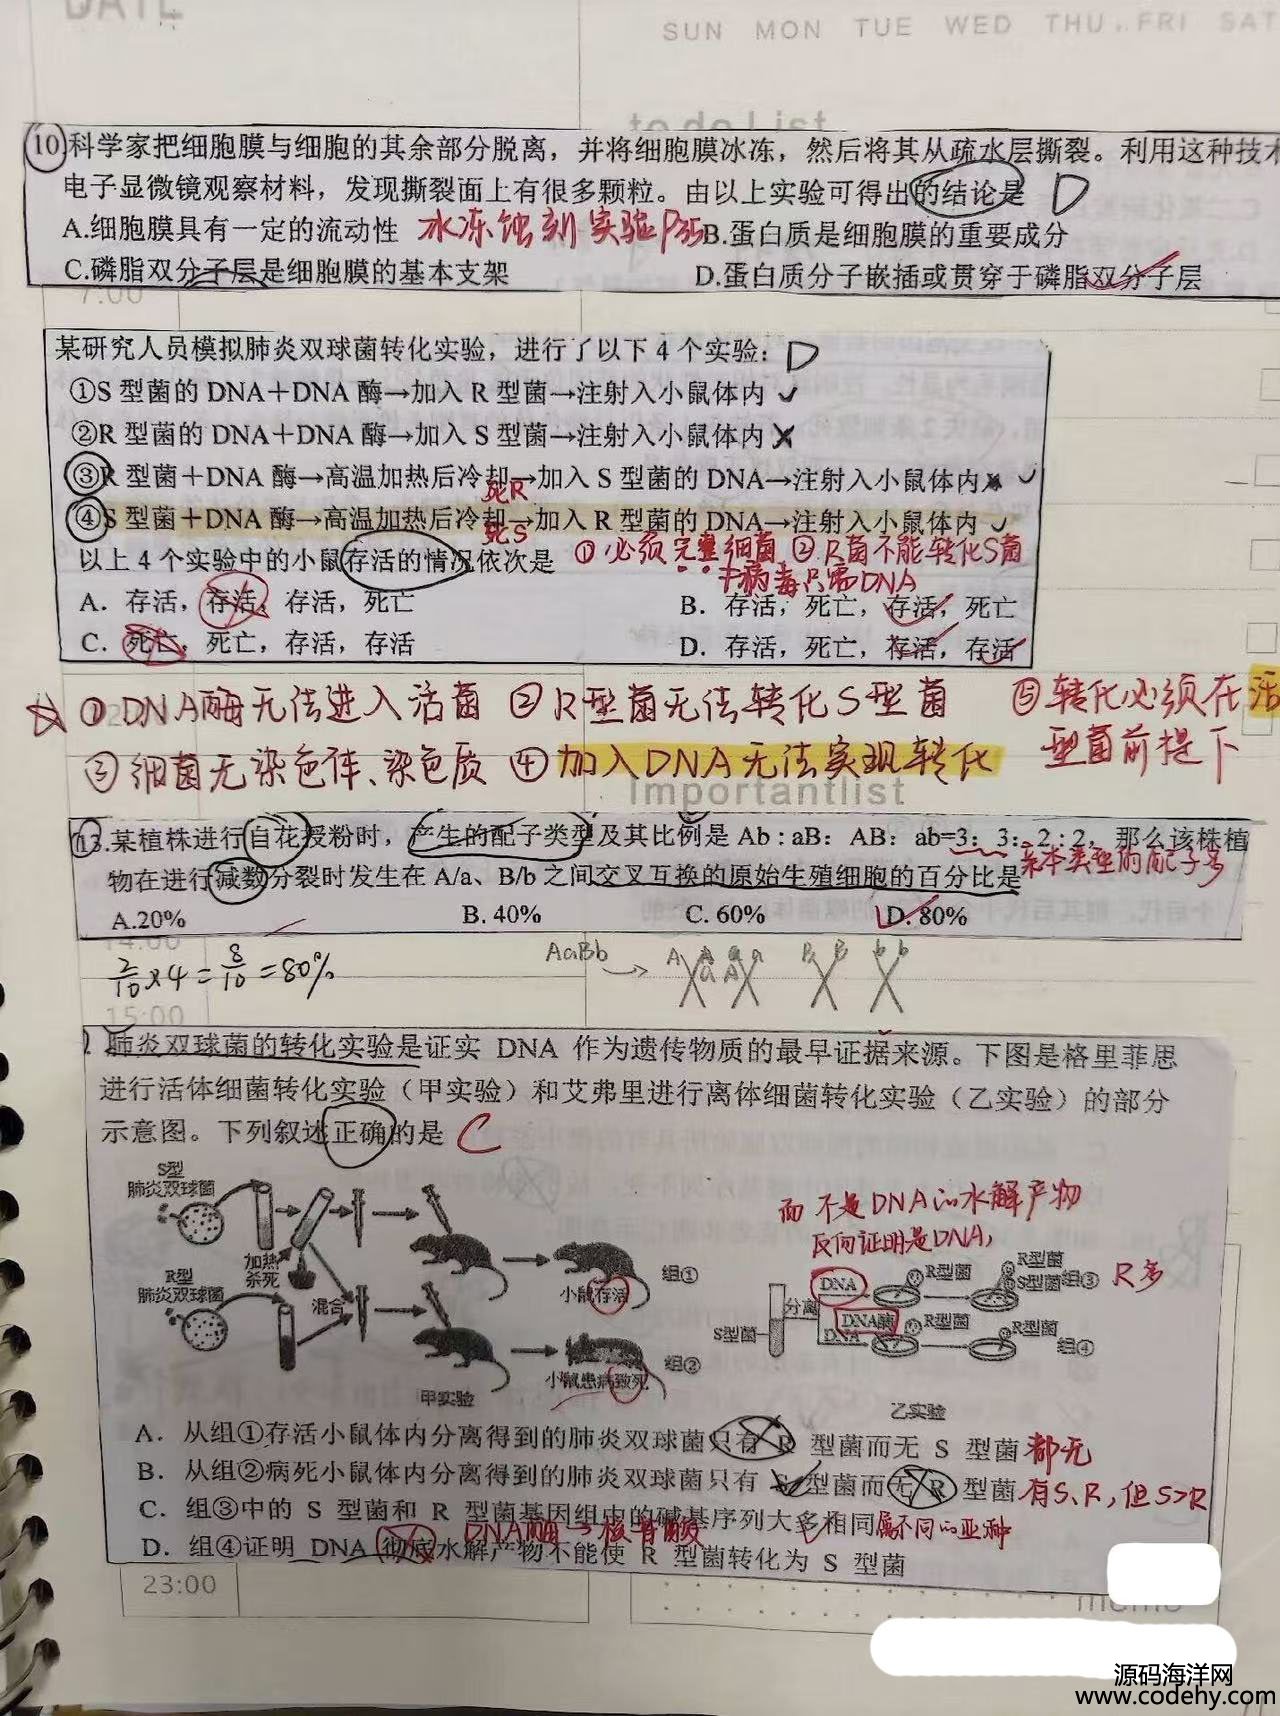 DATE
SUN MON TUE WED THU. FRI SAT
to do List
10.科学家把细胞膜与细胞的其余部分脱离，并将细胞膜冰冻，然后将其从疏水层撕裂。利用这种技术
电子显微镜观察材料，发现撕裂面上有很多颗粒。由以上实验可得出的结论是 D
A.细胞膜具有一定的流动性 冰冻蚀刻实验P35 B.蛋白质是细胞膜的重要成分
C.磷脂双分子层是细胞膜的基本支架 D.蛋白质分子嵌插或贯穿于磷脂双分子层
7:00
某研究人员模拟肺炎双球菌转化实验，进行了以下4个实验：D
①S型菌的DNA＋DNA酶→加入R型菌→注射入小鼠体内
②R型菌的DNA＋DNA酶→加入S型菌→注射入小鼠体内
③R型菌＋DNA酶→高温加热后冷却→加入S型菌的DNA→注射入小鼠体内
死R
④S型菌＋DNA酶→高温加热后冷却→加入R型菌的DNA→注射入小鼠体内
死S
以上4个实验中的小鼠存活的情况依次是 ①必须完整细菌 ②R菌不能转化S菌
病毒只需DNA
A．存活，存活，存活，死亡 B．存活，死亡，存活，死亡
C．死亡，死亡，存活，存活 D．存活，死亡，存活，存活
☆ ①DNA酶无法进入活菌 ②R型菌无法转化S型菌 ⑤转化必须在活
③细菌无染色体、染色质 ④加入DNA无法实现转化 型菌前提下
Importantlist
13.某植株进行自花授粉时，产生的配子类型及其比例是Ab:aB：AB：ab=3：3：2:2，那么该株植
亲本类型的配子多
物在进行减数分裂时发生在A/a、B/b之间交叉互换的原始生殖细胞的百分比是
A.20% B. 40% C. 60% D. 80%
14:00
2/10×4=8/10=80%
AaBb → A A a a B B b b
a A
15:00
肺炎双球菌的转化实验是证实 DNA 作为遗传物质的最早证据来源。下图是格里菲思
进行活体细菌转化实验（甲实验）和艾弗里进行离体细菌转化实验（乙实验）的部分
示意图。下列叙述正确的是 C
S型
肺炎双球菌
加热
杀死
R型
肺炎双球菌
混合
组①
小鼠存活
组②
小鼠患病致死
甲实验
而不是DNA的水解产物
反向证明是DNA,
S型菌
分离
DNA
R型菌
R型菌
S型菌
组③ R多
DNA酶
DNA
R型菌
R型菌
组④
乙实验
A．从组①存活小鼠体内分离得到的肺炎双球菌只有 R 型菌而无 S 型菌 都无
B．从组②病死小鼠体内分离得到的肺炎双球菌只有 S 型菌而无 R 型菌 有S、R，但S>R
C．组③中的 S 型菌和 R 型菌基因组中的碱基序列大多相同 属不同的亚种
DNA酶→核苷酸
D．组④证明 DNA 彻底水解产物不能使 R 型菌转化为 S 型菌
23:00
memo
源码海洋网
www.codehy.com